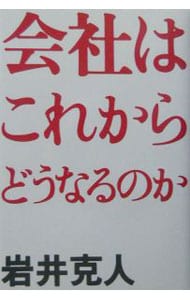 会社は
これから
どうなるのか
岩井克人